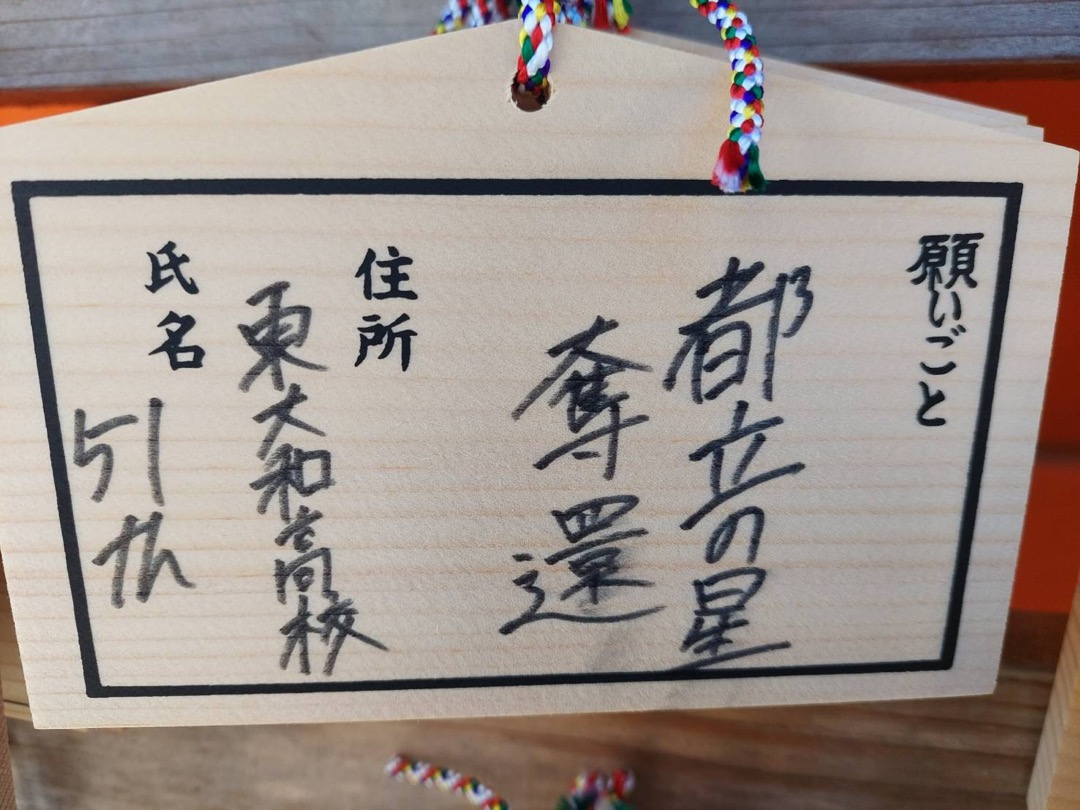 願いごと
都立の星
奪還
住所
東大和高校
氏名